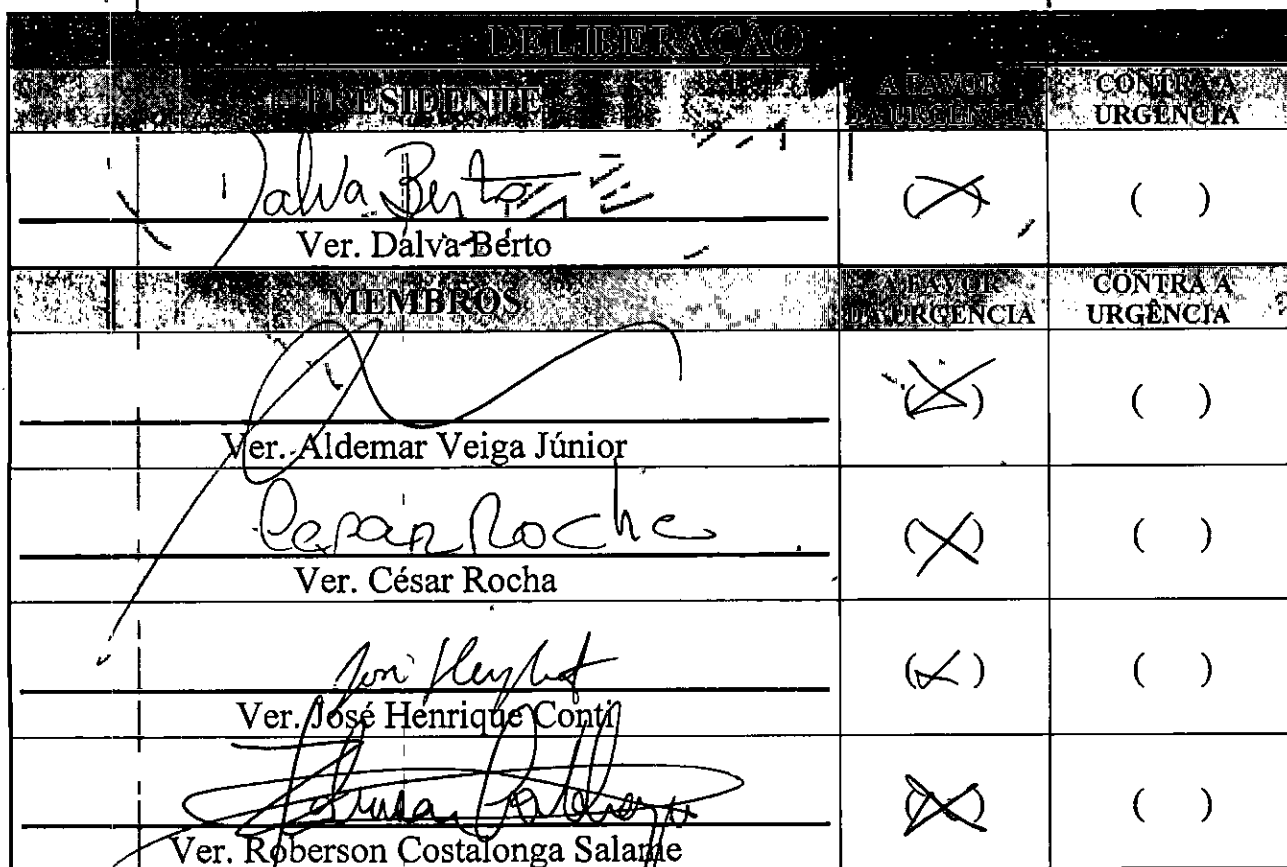 DELIBERAÇÃO
PRESIDENTE A FAVOR DA URGÊNCIA CONTRA A URGÊNCIA
Dalva Berto
Ver. Dalva Berto (X) ( )
MEMBROS A FAVOR DA URGÊNCIA CONTRA A URGÊNCIA
Ver. Aldemar Veiga Júnior (X) ( )
Cesar Rocha
Ver. César Rocha (X) ( )
Ver. José Henrique Conti (X) ( )
Ver. Roberson Costalonga Salame (X) ( )